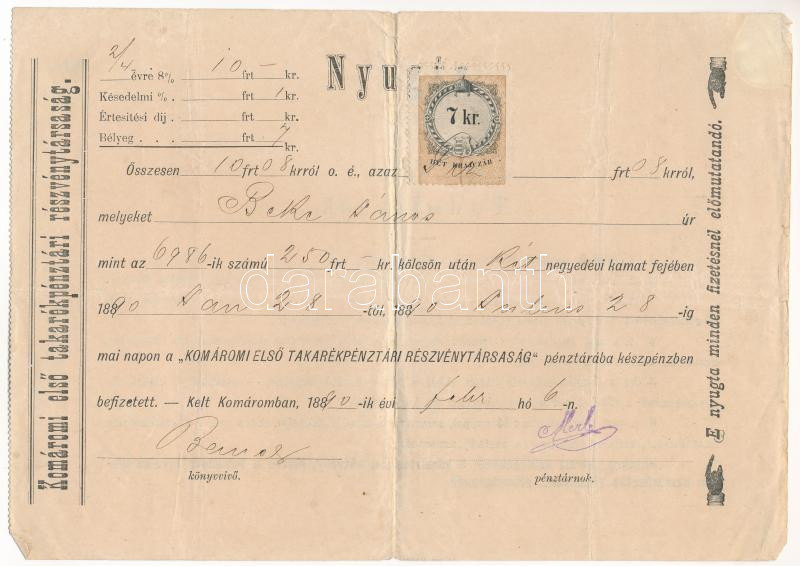 Komáromi első takarékpénztári részvénytársaság.
2/4 évre 8% 10 frt – kr.
Késedelmi % . frt 1 kr.
Értesitési dij . frt – kr.
Bélyeg . . . frt 7 kr.
Nyu
7 kr.
HÉT KRAJCZÁR
Összesen 10 frt 08 krról o. é., azaz frt 08 krról,
melyeket Beke János úr
mint az 6986-ik számú 250 frt – kr. kölcsön után Két negyedévi kamat fejében
1890 Jan 28-tól, 1890 Julius 28-ig
mai napon a „KOMÁROMI ELSŐ TAKARÉKPÉNZTÁRI RÉSZVÉNYTÁRSASÁG“ pénztárába készpénzben
befizetett. — Kelt Komáromban, 1890-ik évi febr hó 6-n.
könyvvivő.
pénztárnok.
E nyugta minden fizetésnél előmutatandó.
darabanth